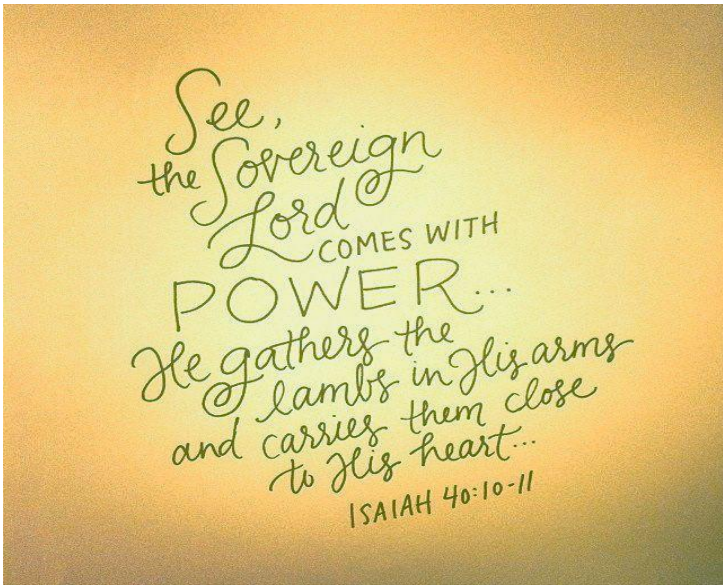 See,
the Sovereign
Lord
COMES WITH
POWER...
He gathers the
lambs in His arms
and carries them close
to His heart...
ISAIAH 40:10-11